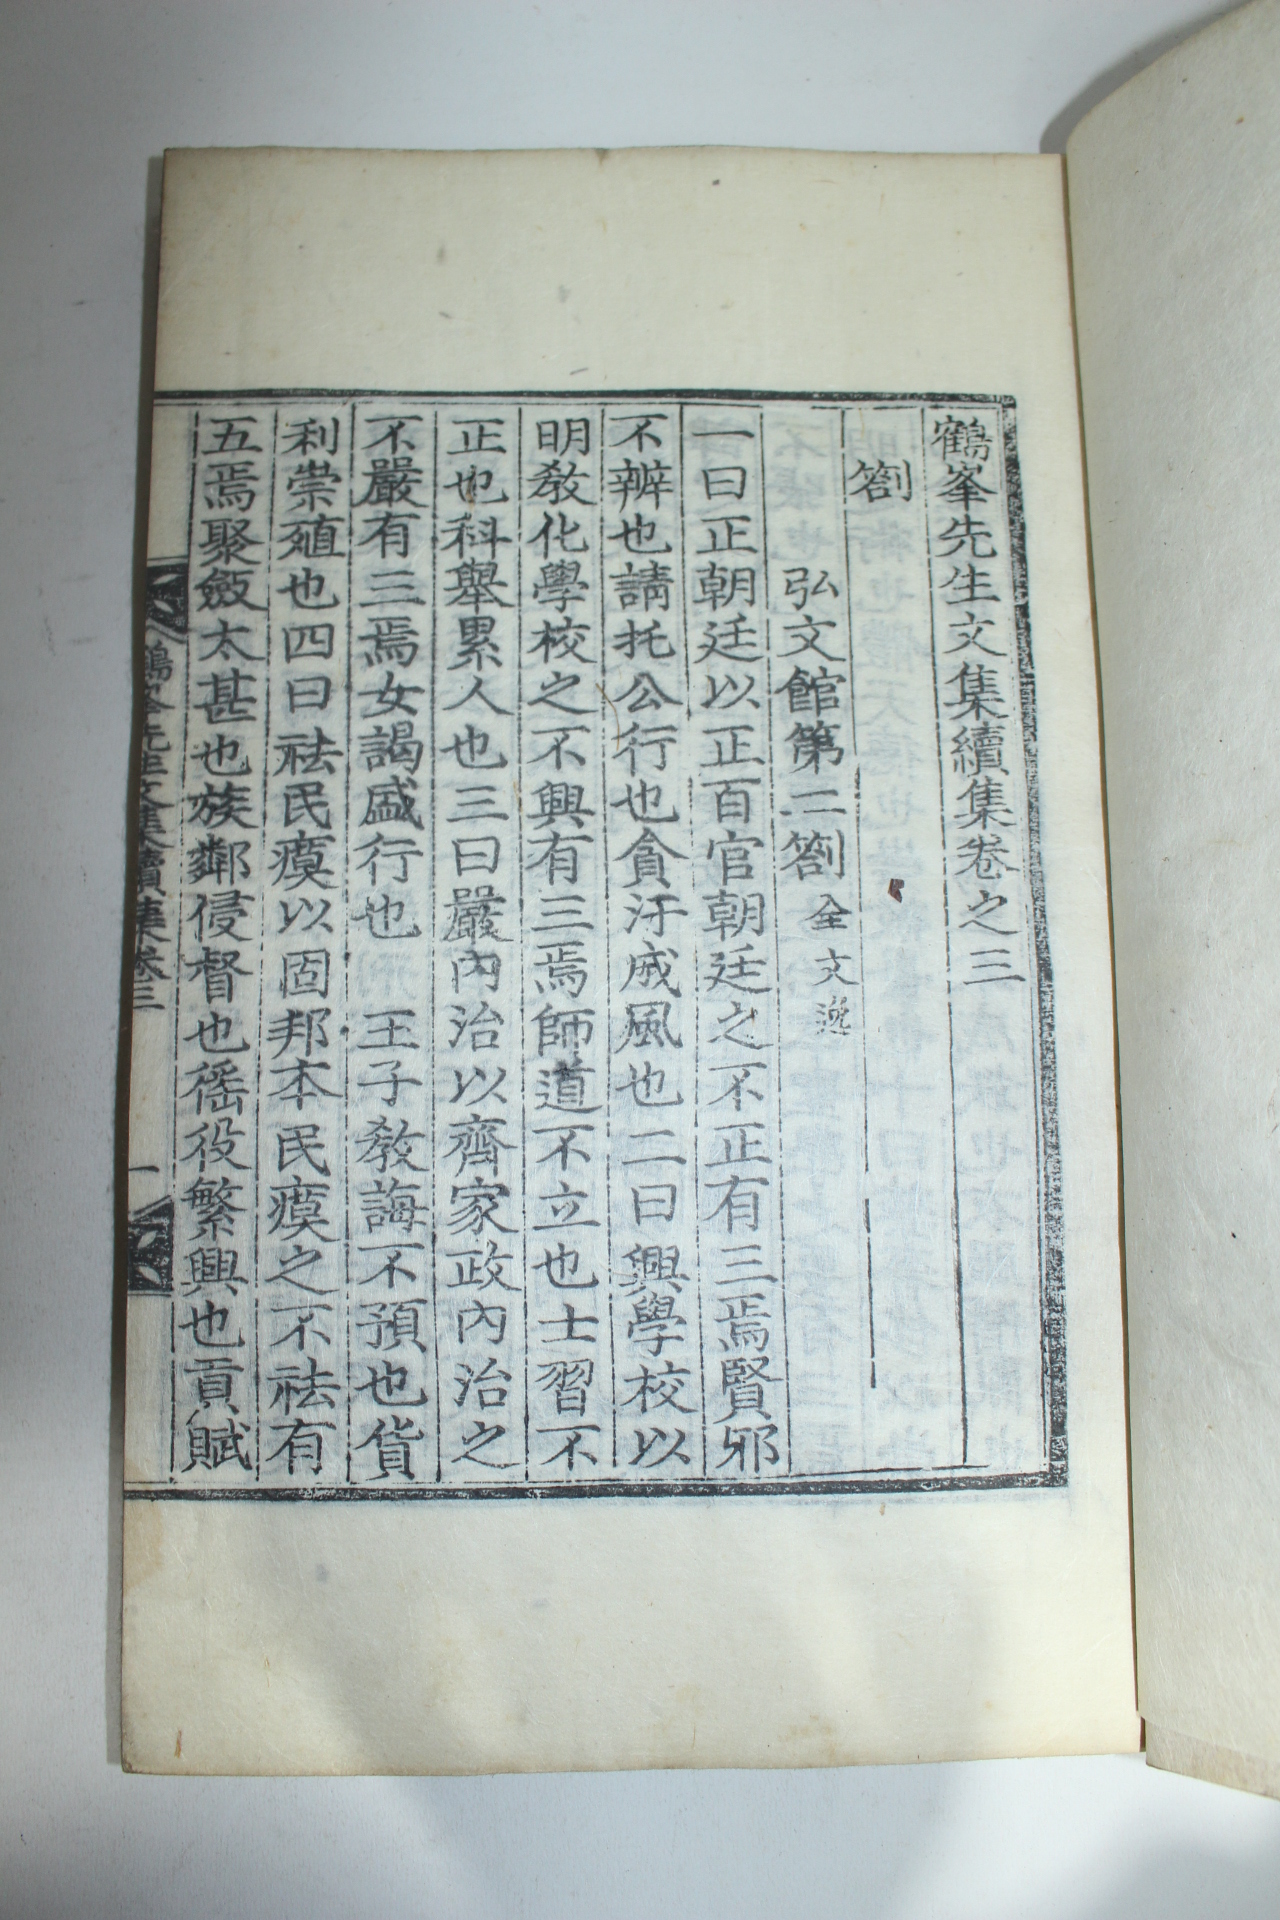 鶴峯先生文集續集卷之三
劄
弘文館第二劄 全文逸
一曰正朝廷以正百官朝廷之不正有三焉賢邪
不辨也請托公行也貪汙成風也二曰興學校以
明敎化學校之不興有三焉師道不立也士習不
正也科擧累人也三曰嚴內治以齊家政內治之
不嚴有三焉女謁盛行也 王子敎誨不預也貨
利崇殖也四曰祛民瘼以固邦本民瘼之不祛有
五焉聚斂太甚也族鄰侵督也徭役繁興也貢賦
鶴峯先生文集續集卷三
一